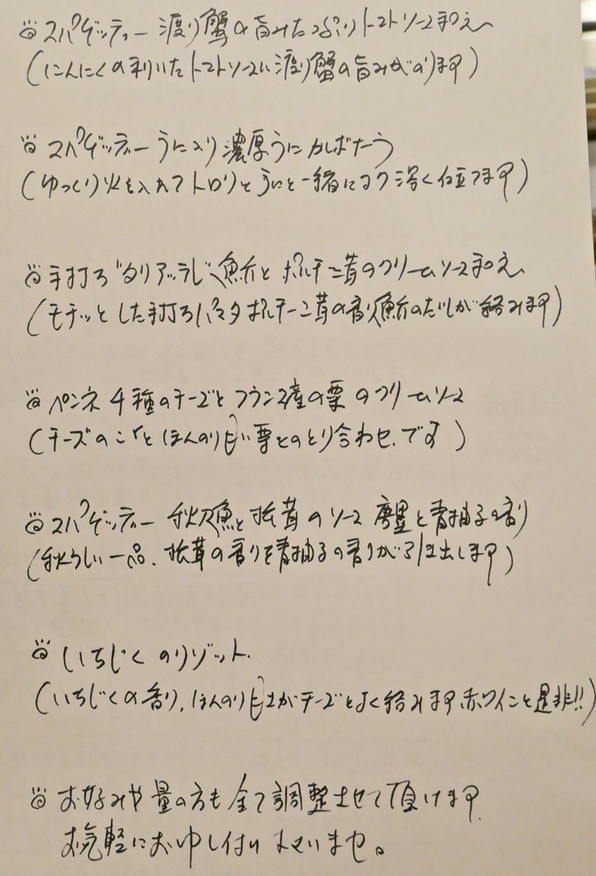 スパゲッティー 渡り蟹の旨みたっぷりトマトソース和え
(にんにくの利いたトマトソースに渡り蟹の旨みがのります)
スパゲッティー うに入り濃厚うにかるぼなーら
(ゆっくり火を入れてトロリとうにと一緒にコク深く仕立てます)
手打ち タリアッテレ 魚介とポルチーニ茸のクリームソース和え
(モチッとした手打ちパスタ ポルチーニ茸の香り 魚介のだしが絡みます)
ペンネ 4種のチーズとフランス産の栗のクリームソース
(チーズのコクとほんのり甘い栗とのとり合わせです)
スパゲッティー 秋刀魚と松茸のソース と青柚子の香り
(秋らしい一品、松茸の香りを青柚子の香りが引き出します)
いちじくのリゾット
(いちじくの香り、ほんのり甘さがチーズとよく絡みます 赤ワインと是非!!)
お好みや量の方も全て調整させて頂けます
お気軽にお申し付け下さいませ。